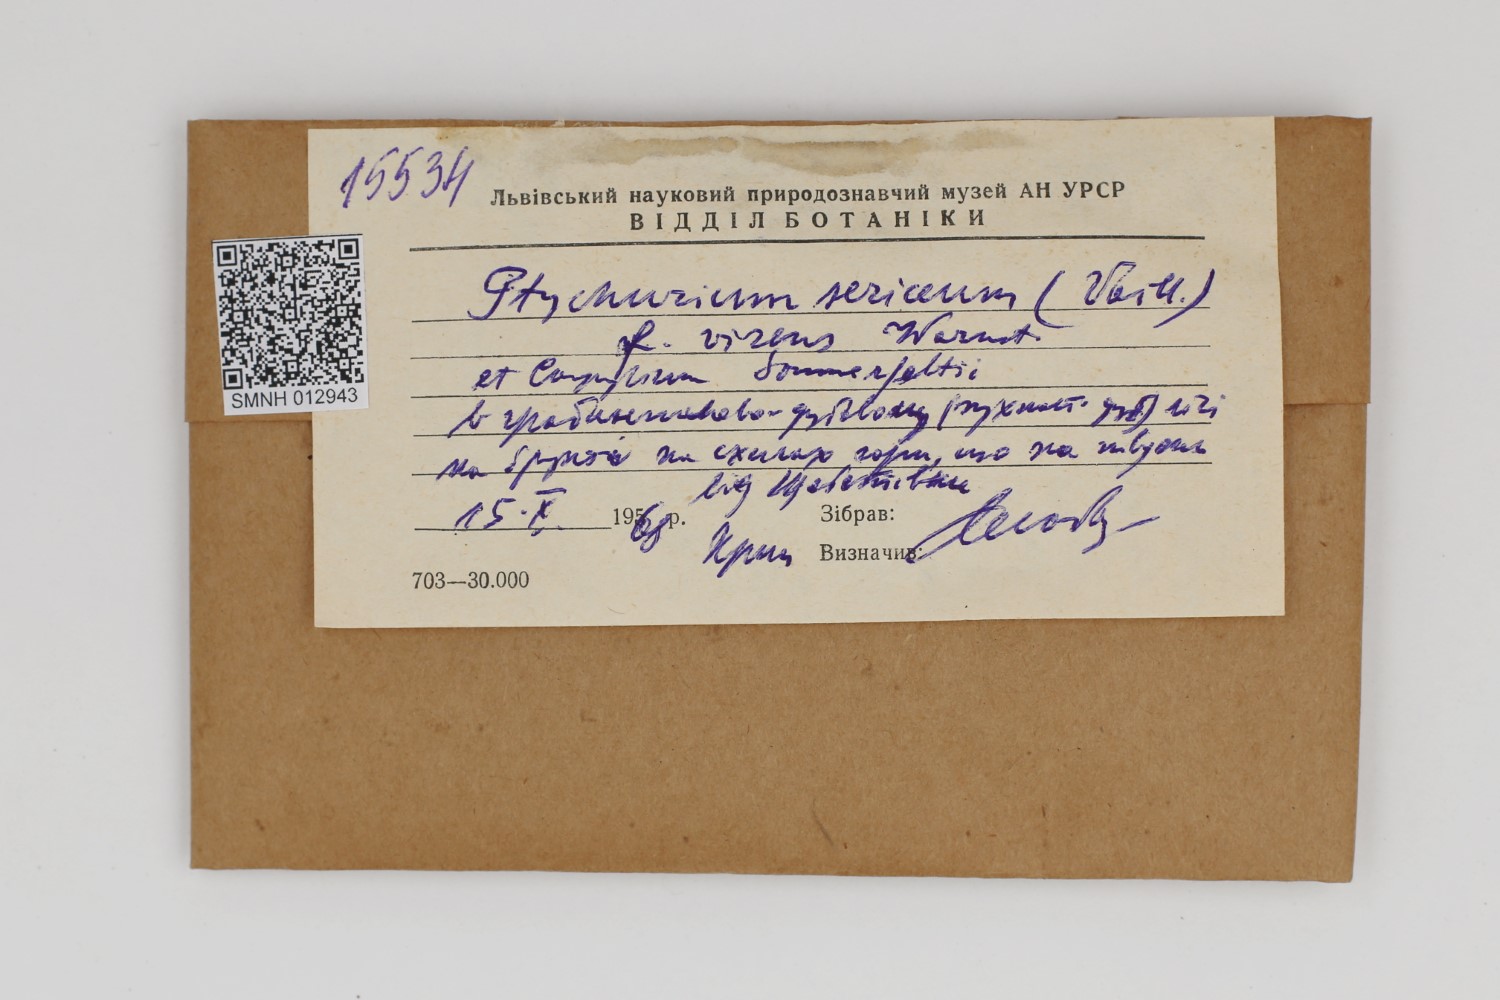 15534
Львівський науковий природознавчий музей АН УРСР
ВІДДІЛ БОТАНІКИ
Ptychurium sericeum (Vaill.)
f. virens Warnst.
et Campylium Sommerfeltii
в грабинниково-дубовому (пухнаст. дуб) лісі
на ґрунті на схилах гори, що на південь
від Щебетівки
15.X. 1968 р.
Крим
Зібрав:
Визначив:
703—30.000
SMNH 012943